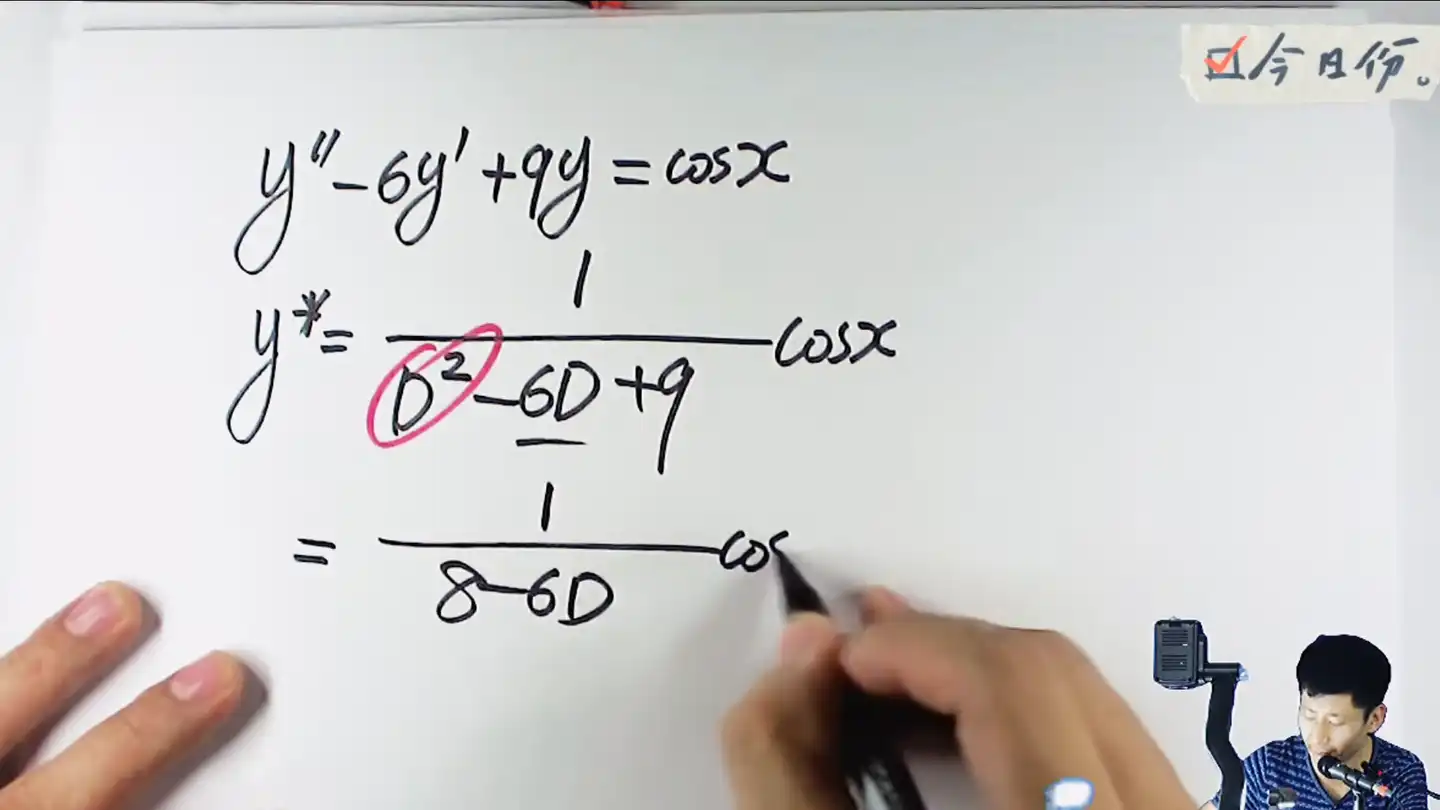 今日份。
y'' - 6y' + 9y = cosx
y* = 1/(D² - 6D + 9) cosx
= 1/(8 - 6D) cos